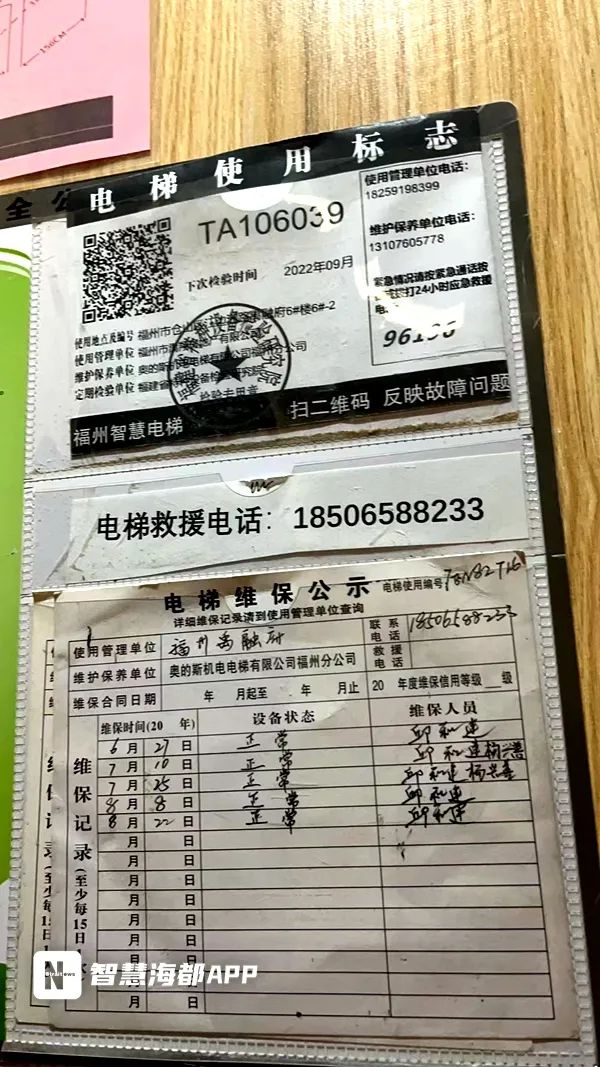 156CM
全公
电梯使用标志
TA106039
下次检验时间 2022年09月
使用管理单位电话：
18259198399
维护保养单位电话：
13107605778
紧急情况请按紧急通话按
拨打24小时应急救援
电
96196
使用地点及编号 福州市仓山 融府6#楼6#-2
使用管理单位 福州市 产有限公司
维护保养单位 奥的斯 电梯有限公司福 公司
定期检验单位 福建省 设备检 研究院
检验专用章
福州智慧电梯 扫二维码 反映故障问题
电梯救援电话：18506588233
电梯维保公示 电梯使用编号
详细维保记录请到使用管理单位查询
使用管理单位 福州禹融府 联系电话 18506588233
维护保养单位 奥的斯机电电梯有限公司福州分公司 救援电话
维保合同日期 年 月起至 年 月止 20 年度维保信用等级 级
维保记录（至少每15日1
维保时间（20 年） 设备状态 维保人员
6月27日 正常 邱和建
7月10日 正常 邱和建 杨兴善
7月25日 正常 邱和建 杨兴善
8月8日 正常 邱和建
8月22日 正常 邱和建
月 日
月 日
月 日
月 日
月 日
月 日
月 日
月 日
N 智慧海都APP